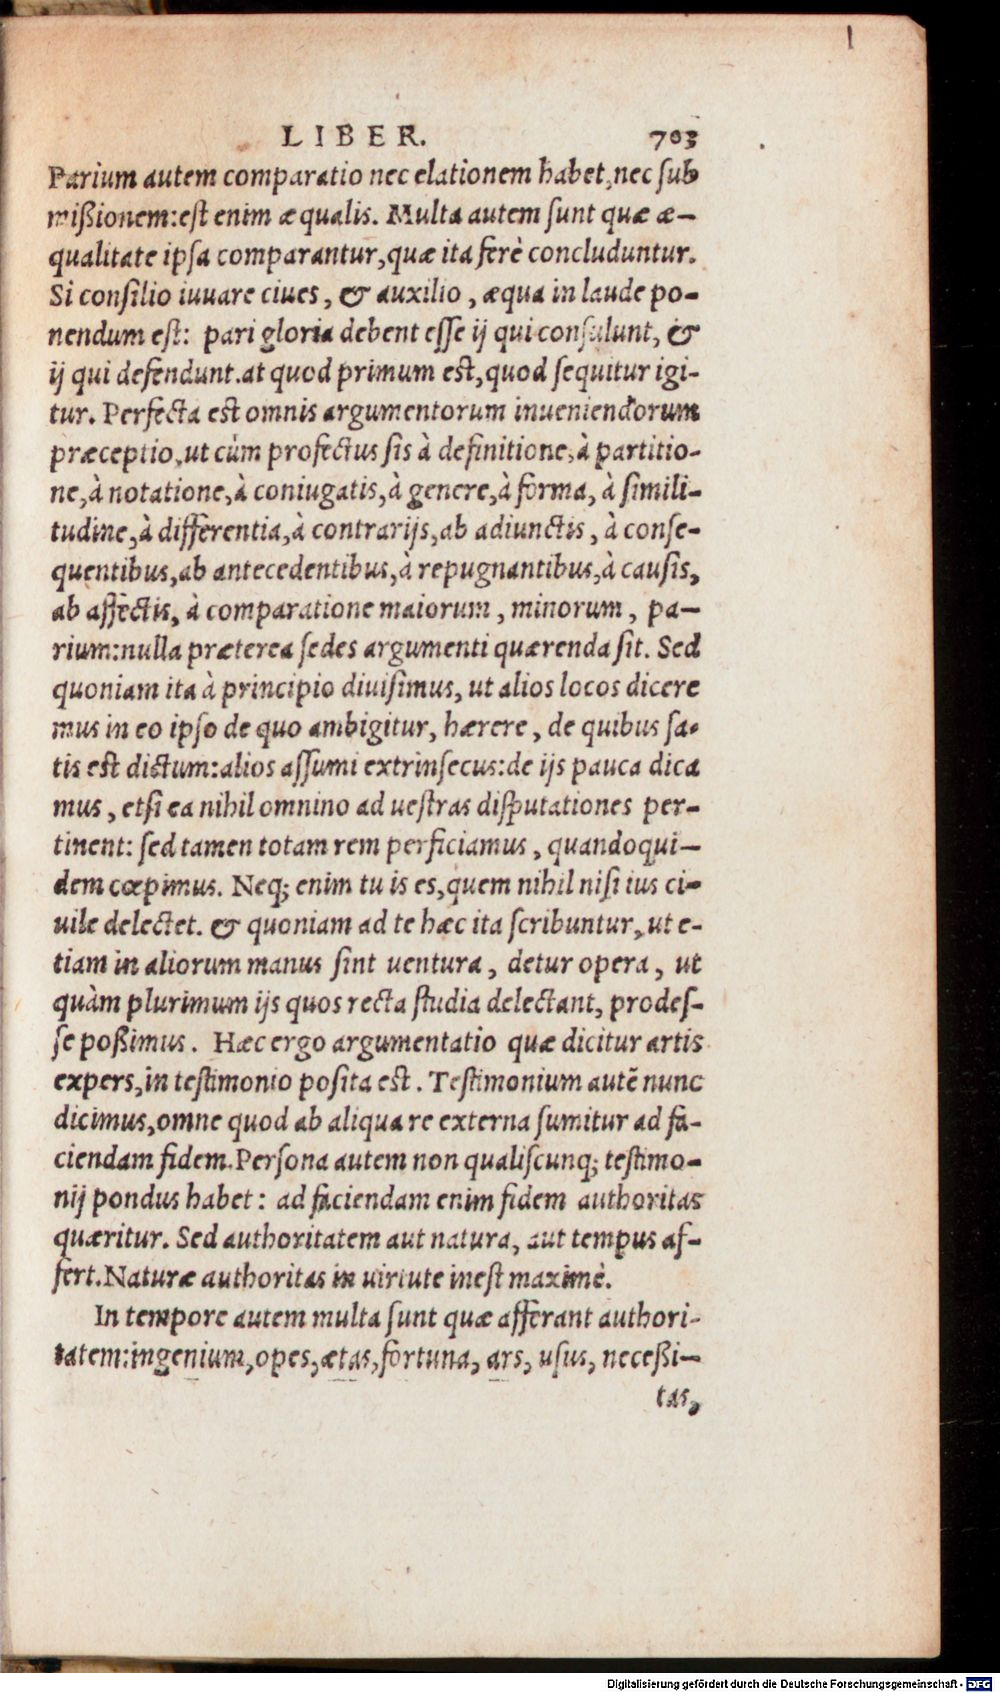 1
LIBER. 703
Parium autem comparatio nec elationem habet, nec sub
mißionem: est enim æqualis. Multa autem sunt quæ æ-
qualitate ipsa comparantur, quæ ita ferè concluduntur.
Si consilio iuuare ciues, & auxilio, æqua in laude po-
nendum est: pari gloria debent esse ij qui consulunt, &
ij qui defendunt. at quod primum est, quod sequitur igi-
tur. Perfecta est omnis argumentorum inueniendorum
præceptio, ut cùm profectus sis à definitione, à partitio-
ne, à notatione, à coniugatis, à genere, à forma, à simili-
tudine, à differentia, à contrarijs, ab adiunctis, à conse-
quentibus, ab antecedentibus, à repugnantibus, à causis,
ab affectis, à comparatione maiorum, minorum, pa-
rium: nulla præterea sedes argumenti quærenda sit. Sed
quoniam ita à principio diuisimus, ut alios locos dicere
mus in eo ipso de quo ambigitur, hærere, de quibus sa-
tis est dictum: alios assumi extrinsecus: de ijs pauca dica
mus, etsi ea nihil omnino ad uestras disputationes per-
tinent: sed tamen totam rem perficiamus, quandoqui-
dem cœpimus. Neq; enim tu is es, quem nihil nisi ius ci-
uile delectet. & quoniam ad te hæc ita scribuntur, ut e-
tiam in aliorum manus sint uentura, detur opera, ut
quàm plurimum ijs quos recta studia delectant, prodes-
se poßimus. Hæc ergo argumentatio quæ dicitur artis
expers, in testimonio posita est. Testimonium autē nunc
dicimus, omne quod ab aliqua re externa sumitur ad fa-
ciendam fidem. Persona autem non qualiscunq; testimo-
nij pondus habet: ad faciendam enim fidem authoritas
quæritur. Sed authoritatem aut natura, aut tempus af-
fert. Naturæ authoritas in uirtute inest maximè.
In tempore autem multa sunt quæ afferant authori-
tatem: ingenium, opes, ætas, fortuna, ars, usus, neceßi-
tas,
Digitalisierung gefördert durch die Deutsche Forschungsgemeinschaft - DFG